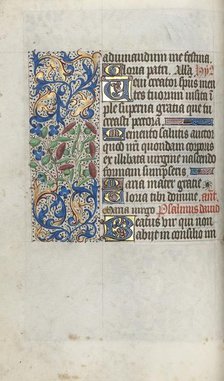 adiuuandum me festina.
Gloria patri. Alla. hyp̄.
Ueni creator spūs men
tes tuorum visita im
ple superna gratia que tu
creasti pectora.
Memento salutis auctor
quod nr̄i quondam corporis
ex illibata virgine nascendo
formam sumpseris.
Maria mater gratie
Gloria tibi domine. ant̄.
Maria virgo. Psalmus dauid
Beatus vir qui non
abijt in consilio im